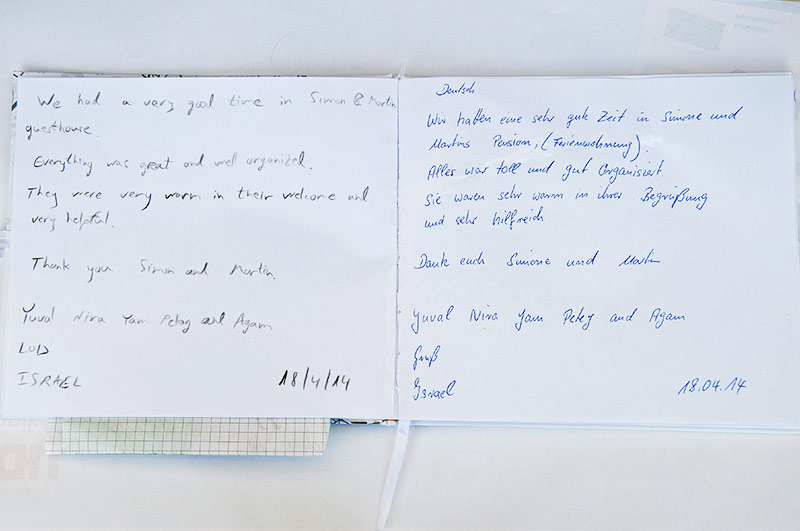 We had a very good time in Simon & Martin
guesthouse.
Everything was great and well organized.
They were very warm in their welcome and
very helpful.
Thank you Simon and Martin.
Yuval Nira Yam Peleg and Agam
LOD
ISRAEL 18/4/14
Deutsch
Wir hatten eine sehr gute Zeit in Simone und
Martins Pension, (Ferienwohnung).
Alles war toll und gut Organisiert.
Sie waren sehr warm in ihrer Begrüßung
und sehr hilfreich.
Danke euch Simone und Martin
Yuval Nira Yam Peley and Agam
Gruß
Israel 18.04.14